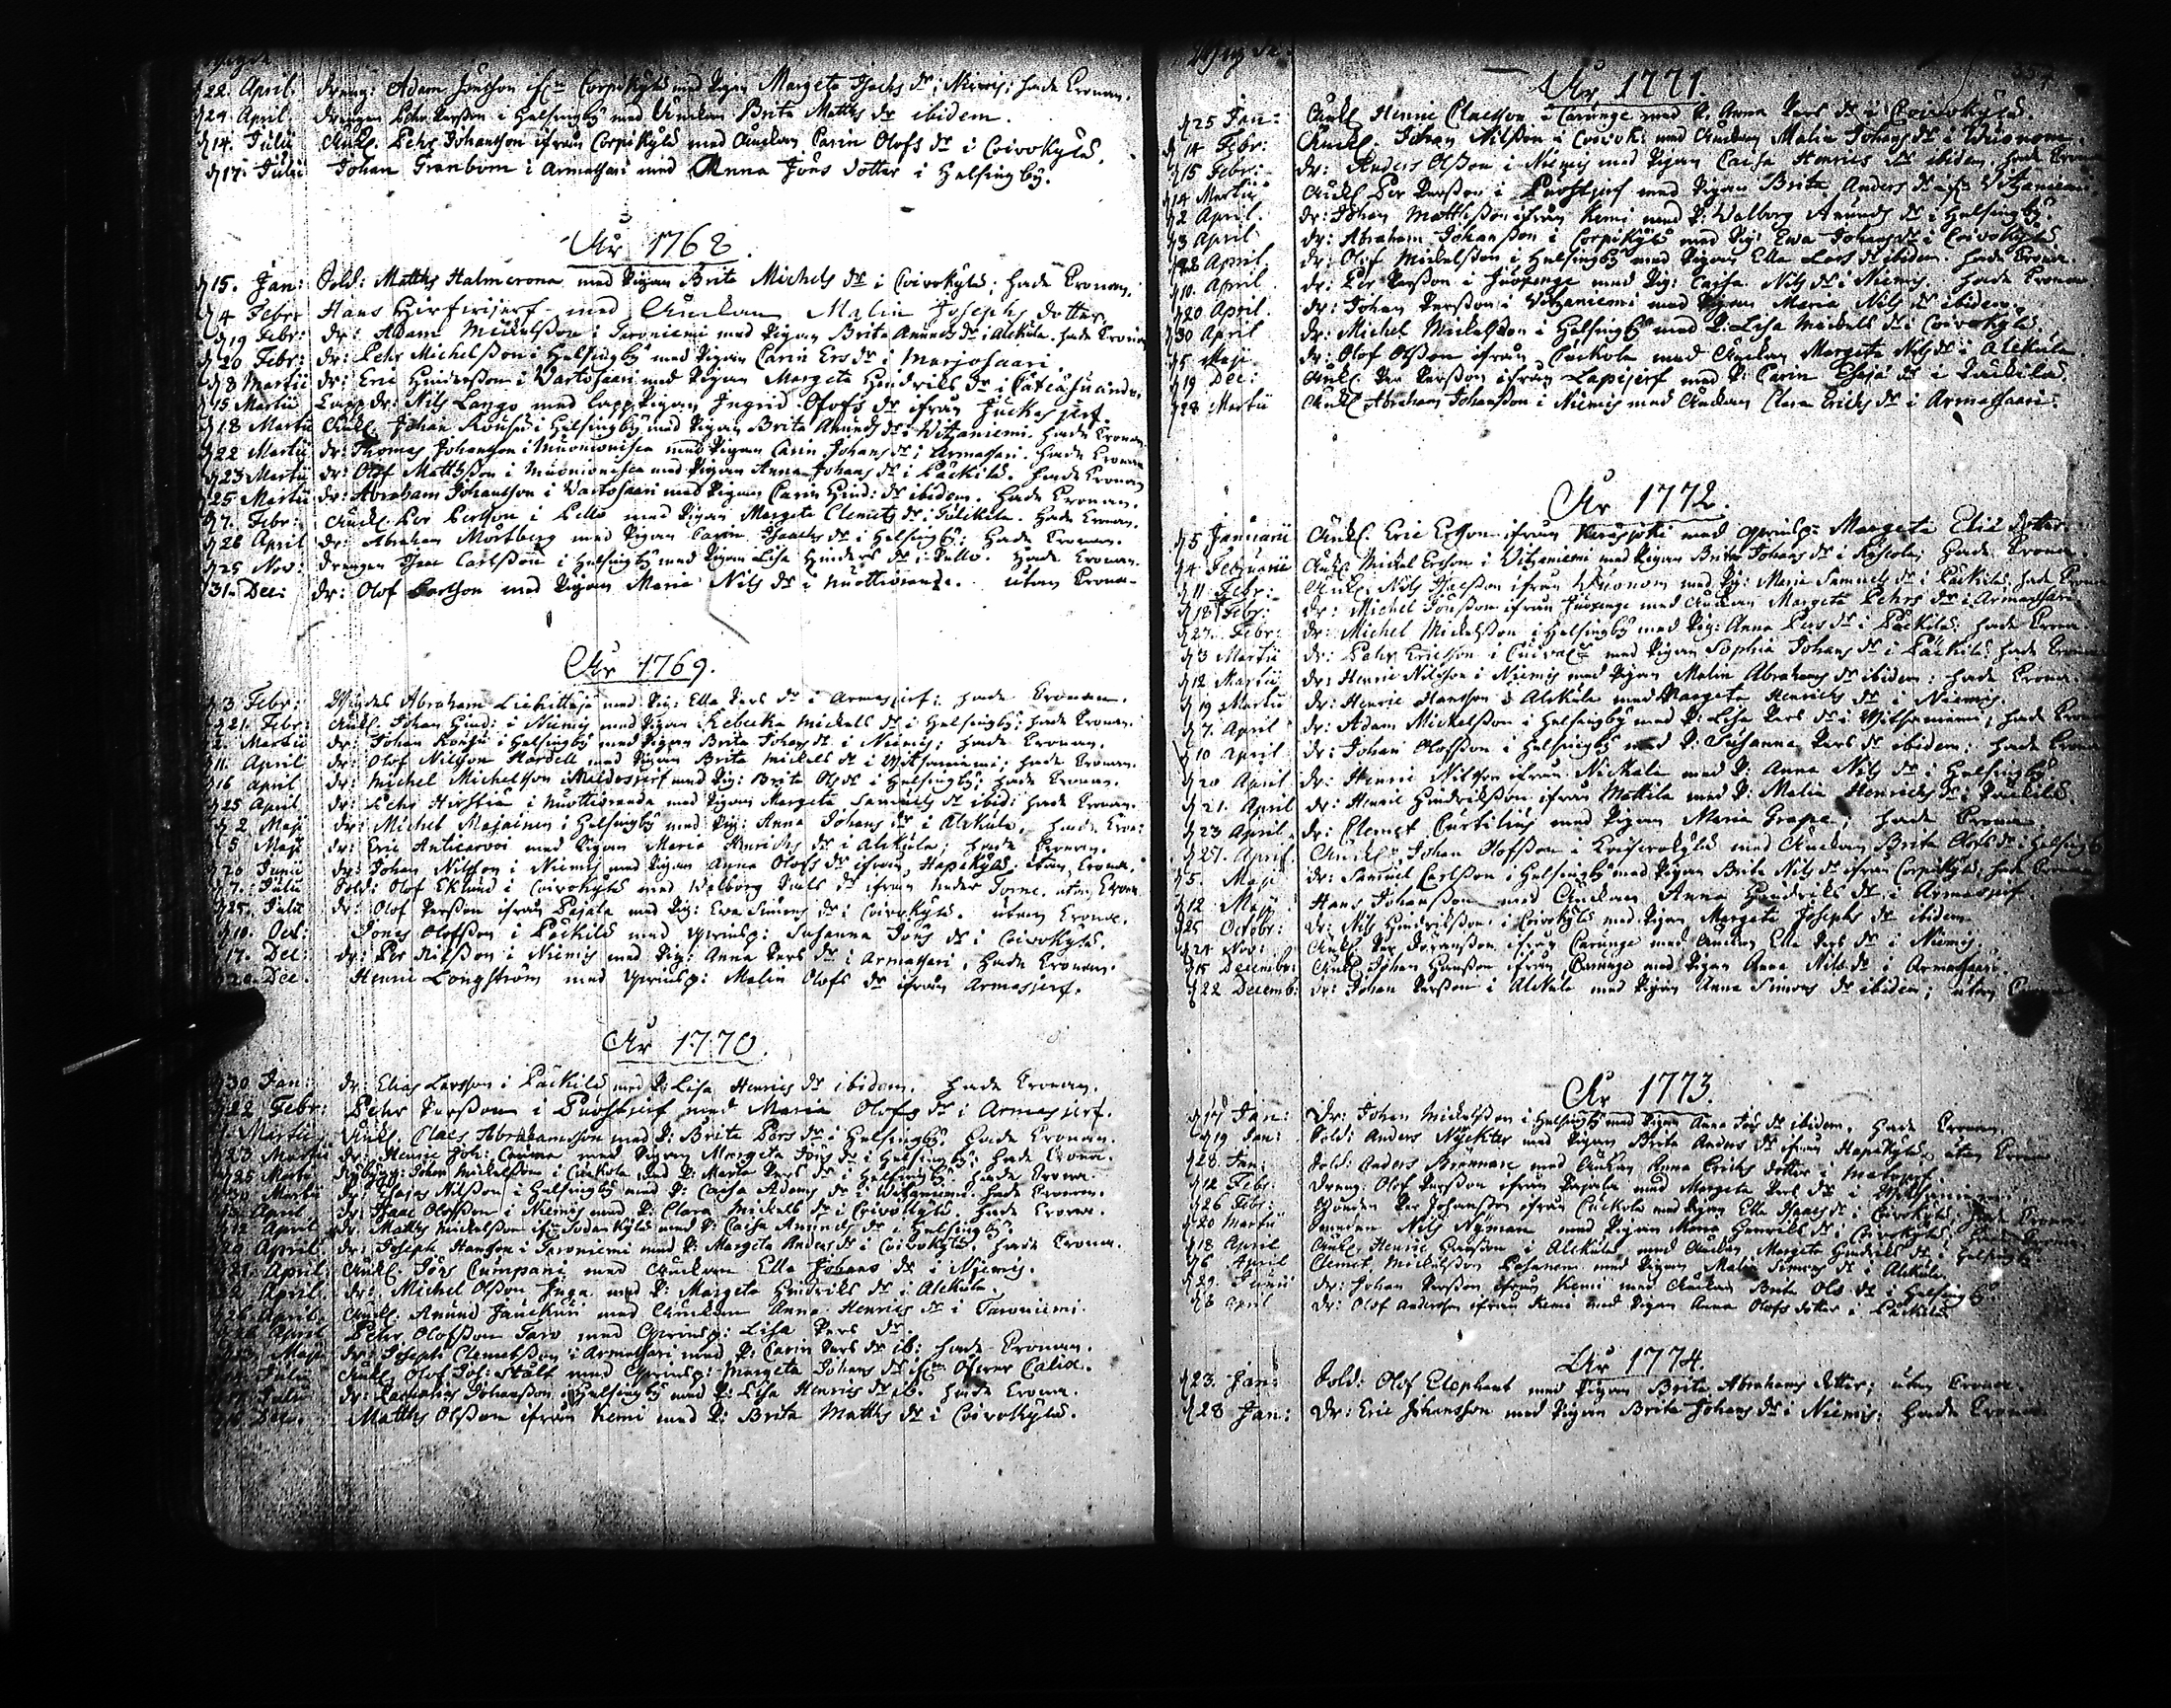 Wigde
d 22. April. Dreng: Adam Jönsson ifrn Corpikylä med Pigan Margeta Isachs dr i Niemis; hade Cronan.
d 24 April drengen Pehr Persson i Helsingby med Änckan Brita Matths dr ibidem.
d 14. Julii Änkl. Pehr Johansson ifrån Corpikylä med Änckan Carin Olofs dr i Coivokylä.
d 17. Julii Johan Granbom i Armassari med Anna Jöns dotter i Helsingby.
År 1768.
d 15. Jan: Sold: Matths Halmcrona med Pigan Brita Michels dr i Coivokylä; hade Cronan.
d 4 Febr: Hans Hirfwijerf med Änckan Malin Josephs dotter.
d 19 Febr: dr: Adam Mickelsson i Taroniemi med Pigan Brita Anunds dr i Alckula. hade Cronan
d 20 Febr: dr: Pehr Michelsson i Helsingby med Pigan Carin Ers dr i Marjosaari.
d 8 Martii dr: Eric Hindersson i Wartosaari med Pigan Margeta Hendriks dr i
d 15 Martii Lapp dr: Nils Lango med Lapp Pigan Ingrid Olofs dr ifrån Juckasjerf.
d 18 Martii Änkl. Johan Rousu i Helsingby med Pigan Brita Anunds dr i Witzaniemi. hade Cronan.
d 22 Martii dr: Thomas Johansson i Muonionisca med Pigan Carin Johans dr i Armassari. hade Cronan
d 23 Martii dr: Olof Mattsson i Muonionisca med Pigan Anna Johans dr i Päckilä. hade Cronan
d 25 Martii dr: Abraham Johansson i Wartosaari med Pigan Carin Hind: dr ibidem. hade Cronan.
d 7. Febr: Änckl. Per Persson i Pello med Pigan Margeta Clemets dr i Turickila. hade Cronan.
d 26 April dr: Abraham Mörtberg med Pigan Carin Isaachs dr i Helsingby; hade Cronan.
d 25 Nov: drengen Isaac Carlsson i Helsingby med Pigan Lisa Hinders dr i Pello. hade Cronan.
d 31. Dec: dr: Olof Carlsson med Pigan Maria Nils dr i Muottioranta. utan Crona.
År 1769.
d 3 Febr: Abraham Lichittäjä med Pig: Ella Pers dr i Armasjerf: hade Cronan.
d 21. Febr: Änkl. Johan Hind: i Niemis med Pigan Rebecka Mickels dr i Helsingby; hade Cronan.
2. Martii dr: Johan Rousu i Helsingby med Pigan Brita Johans dr i Niemis; hade Cronan.
d 11. April dr: Olof Nilsson Hardell med Pigan Brita Mickels dr i Witsaniemi; hade Cronan.
d 16 April dr: Michel Michelsson i Mieldosjerf med Pig: Brita Ols dr i Helsingby; hade Cronan.
d 25 April dr: Pehr Hirstiä i Muottioranda med Pigan Margeta Samuels dr ibid: hade Cronan.
d 2 Maji dr: Michel Majainen i Helsingby med Pig: Anna Johans dr i Alckula, hade Cron:
d 5 Maji dr: Eric Anticarvoi med Pigan Maria Henrichs dr i Alckula; hade Cronan.
d 20 Junii dr: Johan Nilsson i Niemis med Pigan Anna Olofs dr ifrån Hapakylä; utan Crona.
d 7. Julii Sold: Olof Eklund i Coivokylä med Walborg Nils dr ifrån Neder Torne. utan Crona
d 25. Julii dr: Olof Persson ifrån Pajala med Pig: Eva Simons dr i Coivokylä. utan Crona.
d 10. Oct: Jonas Olofsson i Päckilä med Qwinsp: Susanna Jöns dr i Coivokylä.
d 17. Dec: dr: Per Nilsson i Niemis med Pig: Anna Pers dr i Armassari, hade Cronan.
d 20. Dec. Henric Longström med Qwinsp: Malin Olofs dr ifrån Armasjerf.
År 1770.
d 30 Jan: dr: Elias Larsson i Päckilä med P: Lisa Henrics dr ibidem. hade Cronan.
d 22 Febr: Pehr Persson i Puostijerf med Maria Olofs dr i Armasjerf.
Martii Änkl. Claes Abrahamsson med P: Brita Pers dr i Helsingby. hade Cronan.
d 23 Martii dr: Henric Joh: Carema med Pigan Margeta Jöns dr i Helsingby; hade Crona.
d 25 Martii Johan Mickelsson i Cuckola med P: Marta Pers dr i Helsingby. hade Crona.
d 30 Martii dr: Claes Nilsson i Helsingby med P: Caisa Adams dr i Witzaniemi. hade Cronan.
April dr: Isaac Olofsson i Niemis med P: Clara Mickels dr i Coivokylä. hade Crona.
d 12 April dr: Matths Mickelsson ifrn Sodankylä med P: Caisa Anunds dr i Helsingby.
April dr: Joseph Hansson i Taroniemi med P: Margeta Anders dr i Coivokylä. hade Crona.
April Änkl. Jöns Cumpani med Änckan Ella Johans dr i Niemis.
April. dr: Michel Olsson Juga med P: Margeta Hindriks dr i Alckula.
d 26 April. Änkl. Anund Jauckuri med Änckan Anna Henrics dr i Taroniemi.
April Pehr Olofsson Taro med Qwinsp: Lisa Pers dr.
Maji dr: Joseph Clemetsson i Armassari med P: Carin Pers dr ib: hade Cronan.
Julii Änkl. Olof Joh: Stält med Qwinsp: Margeta Johans dr ifrn Öfwer Calix.
Julii dr: Zacharias Johansson i Helsingby med P: Lisa Henrics dr ib. hade Crona.
Dec. Matths Olsson ifrån Kemi med P: Brita Matths dr i Coivokylä.
Wigde.
357.
År 1771.
d 25 Jan: Änkl. Henric Claesson i Carunge med P. Anna Pers dr i Coivokylä
d 14 Febr: Änckl. Johan Nilsson i Coivok: med Änckan Malin Johans dr i Wuonom.
d 15 Febr: dr: Anders Olsson i Niemis med Pigan Caisa Henrics dr ibidem. hade Crona
d 14 Martii Änkl. Per Persson i Puostijerf med Pigan Brita Anders dr ifrn Witzaniemi
d 2 April. dr: Johan Mattsson ifrån Kemi med P: Walborg Anunds dr i Helsingby.
d 3 April dr: Abraham Johansson i Corpikylä med Pig: Ewa Johans dr i Coivokylä.
d 28 April. dr: Olof Mickelsson i Helsingby med Pigan Ella Lars dr ibidem. hade Crona.
d 10. April dr: Per Persson i Juoxenge med Pig: Caisa Nils dr i Niemis. hade Crona
d 20 April. dr: Johan Persson i Witzaniemi med Pigan Maria Nils dr ibidem.
d 30 April dr: Michel Mickelsson i Helsingby med P: Lisa Mickels dr i Coivokylä.
d 5 Maji dr: Olof Olsson ifrån Cuckola med Änckan Margeta Nils dr i Alckula
d 19 Dec: Änkl. Per Persson ifrån Lapijerf med P: Carin Esaja dr i Päckilä.
d 28 Martii Änkl Abraham Johansson i Niemis med Änckan Clara Erichs dr i Armassaari.
År 1772.
d 5 Januarii Änkl. Eric Ersson ifrån med Qwinsp: Margeta Eliæ dotter
d 4 Februarii Änkl. Mickel Ersson i Witzaniemi med Pigan Brita Johans dr i Ruskola; hade Crona.
d 11 Febr: Änkl. Nils Isacsson ifrån Wuonom med Pig: Maria Samuels dr i Päckilä. hade Crona
d 18 Febr: dr: Michel Jönsson ifrån Juoxenge med Änckan Margeta Pehrs dr i Armassari
d 27. Febr: dr: Michel Mickelsson i Helsingby med Pig: Anna Pers dr i Päckilä: hade Crona.
d 3 Martii dr: Pehr Ericsson i med Pigan Sophia Johans dr i Päckilä. hade Crona
d 12. Martii dr: Henric Nilsson i Niemis med Pigan Malin Abrahams dr ibidem: hade Crona.
d 19 Martii dr: Henric Hansson i Alckula med Margeta Henrichs dr i Niemis.
d 7. April dr: Adam Mickelsson i Helsingby med P: Lisa Pers dr i Witsaniemi, hade Crona
d 10 April dr: Johan Olofsson i Helsingby med P: Susanna Pers dr ibidem: hade Crona
d 20 April. dr: Henric Nilsson ifrån Nickala med P: Anna Nils dr i Helsingby.
d 21. April dr: Henric Hindriksson ifrån Mattila med P: Malin Henrichs dr i Päckilä.
d 23 April. dr: Clemet Curtilius med Pigan Maria Grape; hade Crona
d 27. April Änckl. Johan Olofsson i med Änckan Brita Olofs dr i Helsingby
d 5. Maji dr: Samuel Carlsson i Helsingby med Pigan Brita Nils dr ifrån Corpikylä; hade Crona
d 12 Maji Hans Johansson med Änckan Anna Hindriks dr i Armasjerf.
d 25 Octobr: dr: Nils Hindriksson i Coivokylä med Pigan Margeta Josephs dr ibidem.
d 24 Nov: Änkl. Per Göransson ifrån Carunge med Änckan Ella Pers dr i Niemis.
d 15 Decembr: Änkl Johan Hansson ifrån Carunge med Pigan Anna Nils dr i Armassaari.
d 22 Decemb: dr: Johan Persson i Alckula med Pigan Anna Simons dr ibidem; utan Crona
År 1773.
d 17 Jan: Dr: Johan Mickelsson i Helsingby med Pigan Anna Jöns dr ibidem. hade Cronan.
d 19 Jan: Sold: Anders Nyckter med Pigan Brita Anders dr ifrån Hapakylä, utan Crona
d 28. Jan: Sold: Anders Brännare med Änckan Anna Erichs dotter i
d 12 Febr: Dreng: Olof Persson ifrån Pajala med Margeta Pers dr i Witsaniemi
d 26 Febr: Bonden Per Johansson ifrån Cuckola med Pigan Ella Isaacs dr i Coivokylä, hade Crona
d 20 Martii Nils Nyman med Pigan Maria Henriks dr i Coivokylä; hade Crona.
d 18 April Änkl. Henric Hansson i Alckula med Änckan Margeta Hindriks dr i Helsingby
d 6 April Clemet Mickelsson med Pigan Malin Simons dr i Alckula.
d 29. Junii dr: Johan Persson ifrån Kemi med Änckan Brita Ols dr i Helsingby
d 8 April dr: Olof Andersson ifrån Kemi med Pigan Anna Olofs dotter i Päckilä
År 1774.
d 23. Jan: Sold: Olof Elephant med Pigan Brita Abrahams dotter; utan Crona.
d 28 Jan: Dr: Eric Johansson med Pigan Brita Johans dr i Niemis; hade Crona